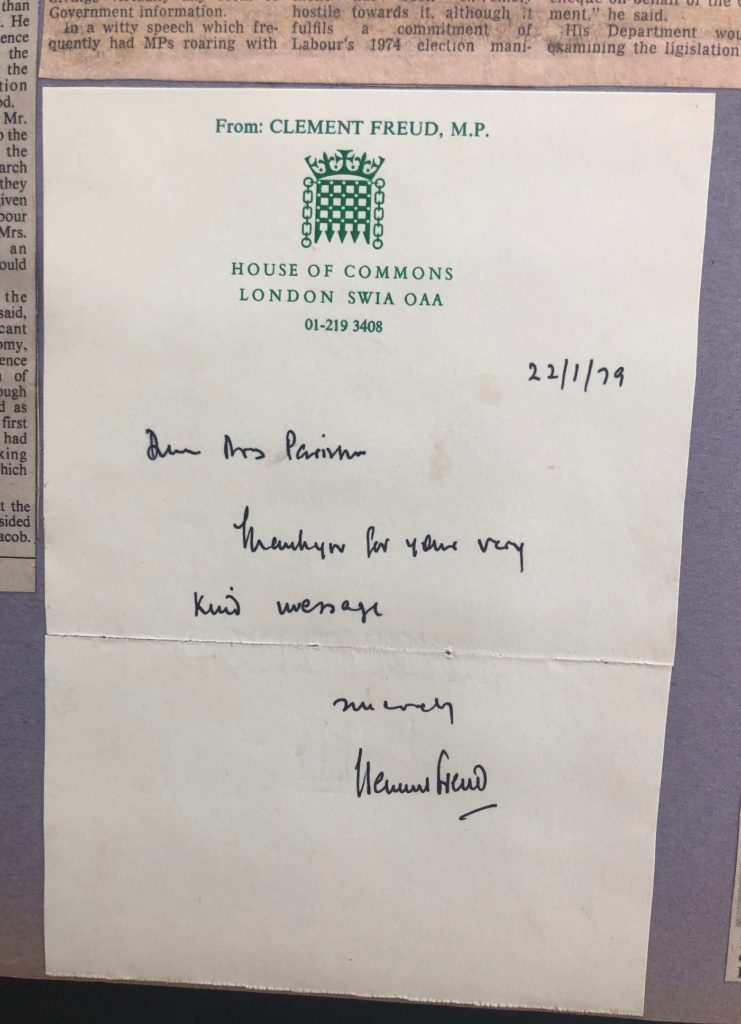 than
. He
ence
the
the
tion
d.
Mr.
o the
the
arch
they
iven
bour
Mrs.
an
ould
the
said,
cant
omy,
ence
of
ough
d as
first
had
king
hich
t the
sided
acob.
Government information.
In a witty speech which fre-
quently had MPs roaring with
hostile towards it, although it
fulfils a commitment of
Labour's 1974 election mani-
ment," he said.
His Department wou
examining the ligislation
From: CLEMENT FREUD, M.P.
HOUSE OF COMMONS
LONDON SW1A OAA
01-219 3408
22/1/79
Dear Mrs
Thankyou for your very
kind message
sincerely
Clement Freud